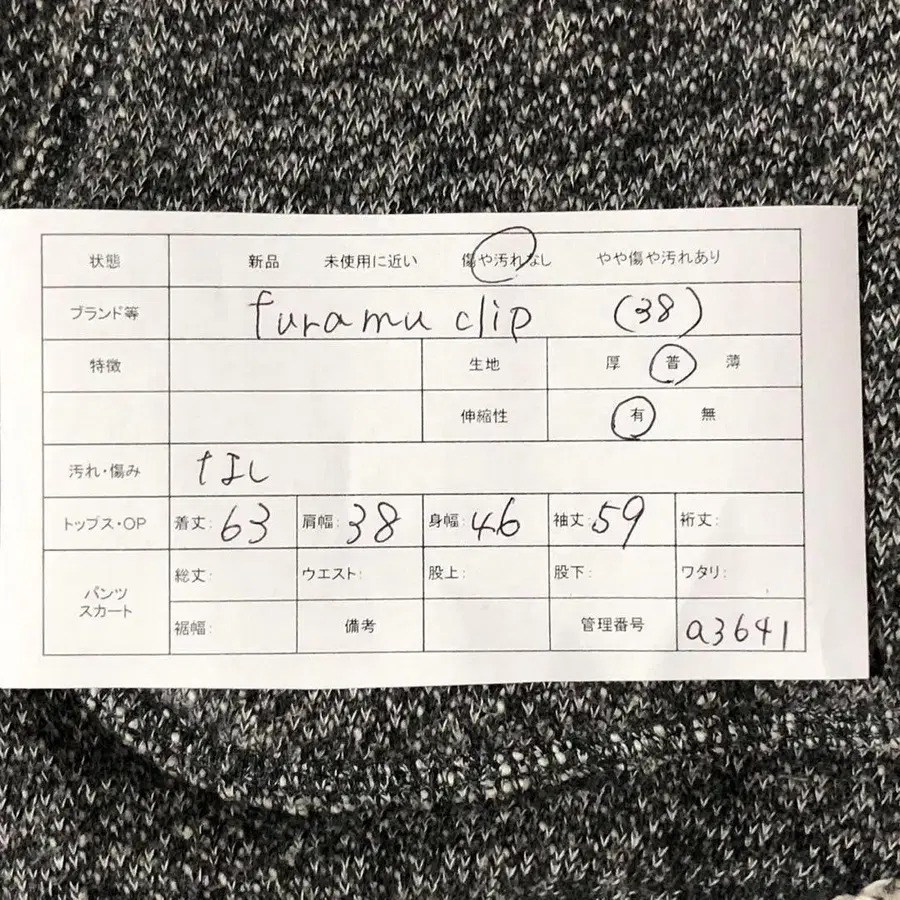 状態 新品 未使用に近い 傷や汚れなし やや傷や汚れあり
ブランド等 furamu clip (38)
特徴 生地 厚 普 薄
伸縮性 有 無
汚れ・傷み なし
トップス・OP 着丈: 63 肩幅: 38 身幅: 46 袖丈: 59 裄丈:
パンツ スカート 総丈: ウエスト: 股上: 股下: ワタリ:
裾幅: 備考 管理番号 a3641